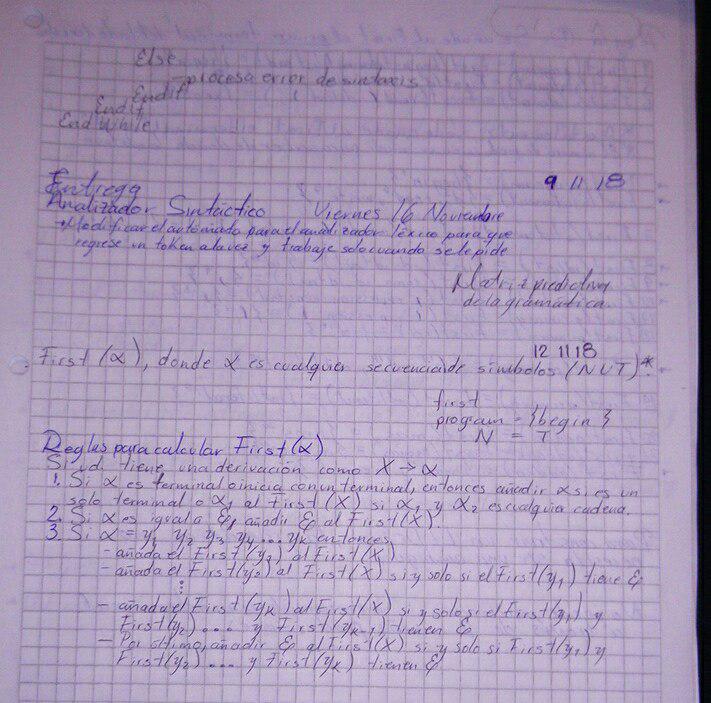 Else
procesa error de sintaxis
Endif
Endif
End While
9 11 18
Entrega
Analizador Sintactico Viernes 16 Noviembre
Modificar el automata para el analizador léxico para que
regrese un token a la vez y trabaje solo cuando se le pide
Matriz predictiva
de la gramatica.
12 11 18
First (α), donde α es cualquier secuencia de simbolos (NUT)*.
first
program = {begin}
N = T
Reglas para calcular First(α)
Si d. tiene una derivación como X → α
1. Si α es terminal o inicia con un terminal, entonces añadir α si es un
solo terminal o α₁ al First(X) si α₁ y α₂ es cualquier cadena.
2. Si α es igual a ε, añadir ε al First(X).
3. Si α = y₁ y₂ y₃ y₄ ... yₖ entonces
- añada el First(y₁) al First(X)
- añada el First(y₂) al First(X) si y solo si el First(y₁) tiene ε
⋮
- añada el First(yₖ) al First(X) si y solo si el First(y₁) y
First(y₂) ... y First(yₖ₋₁) tienen ε
- Por último, añadir ε al First(X) si y solo si First(y₁) y
First(y₂) ... y First(yₖ) tienen ε